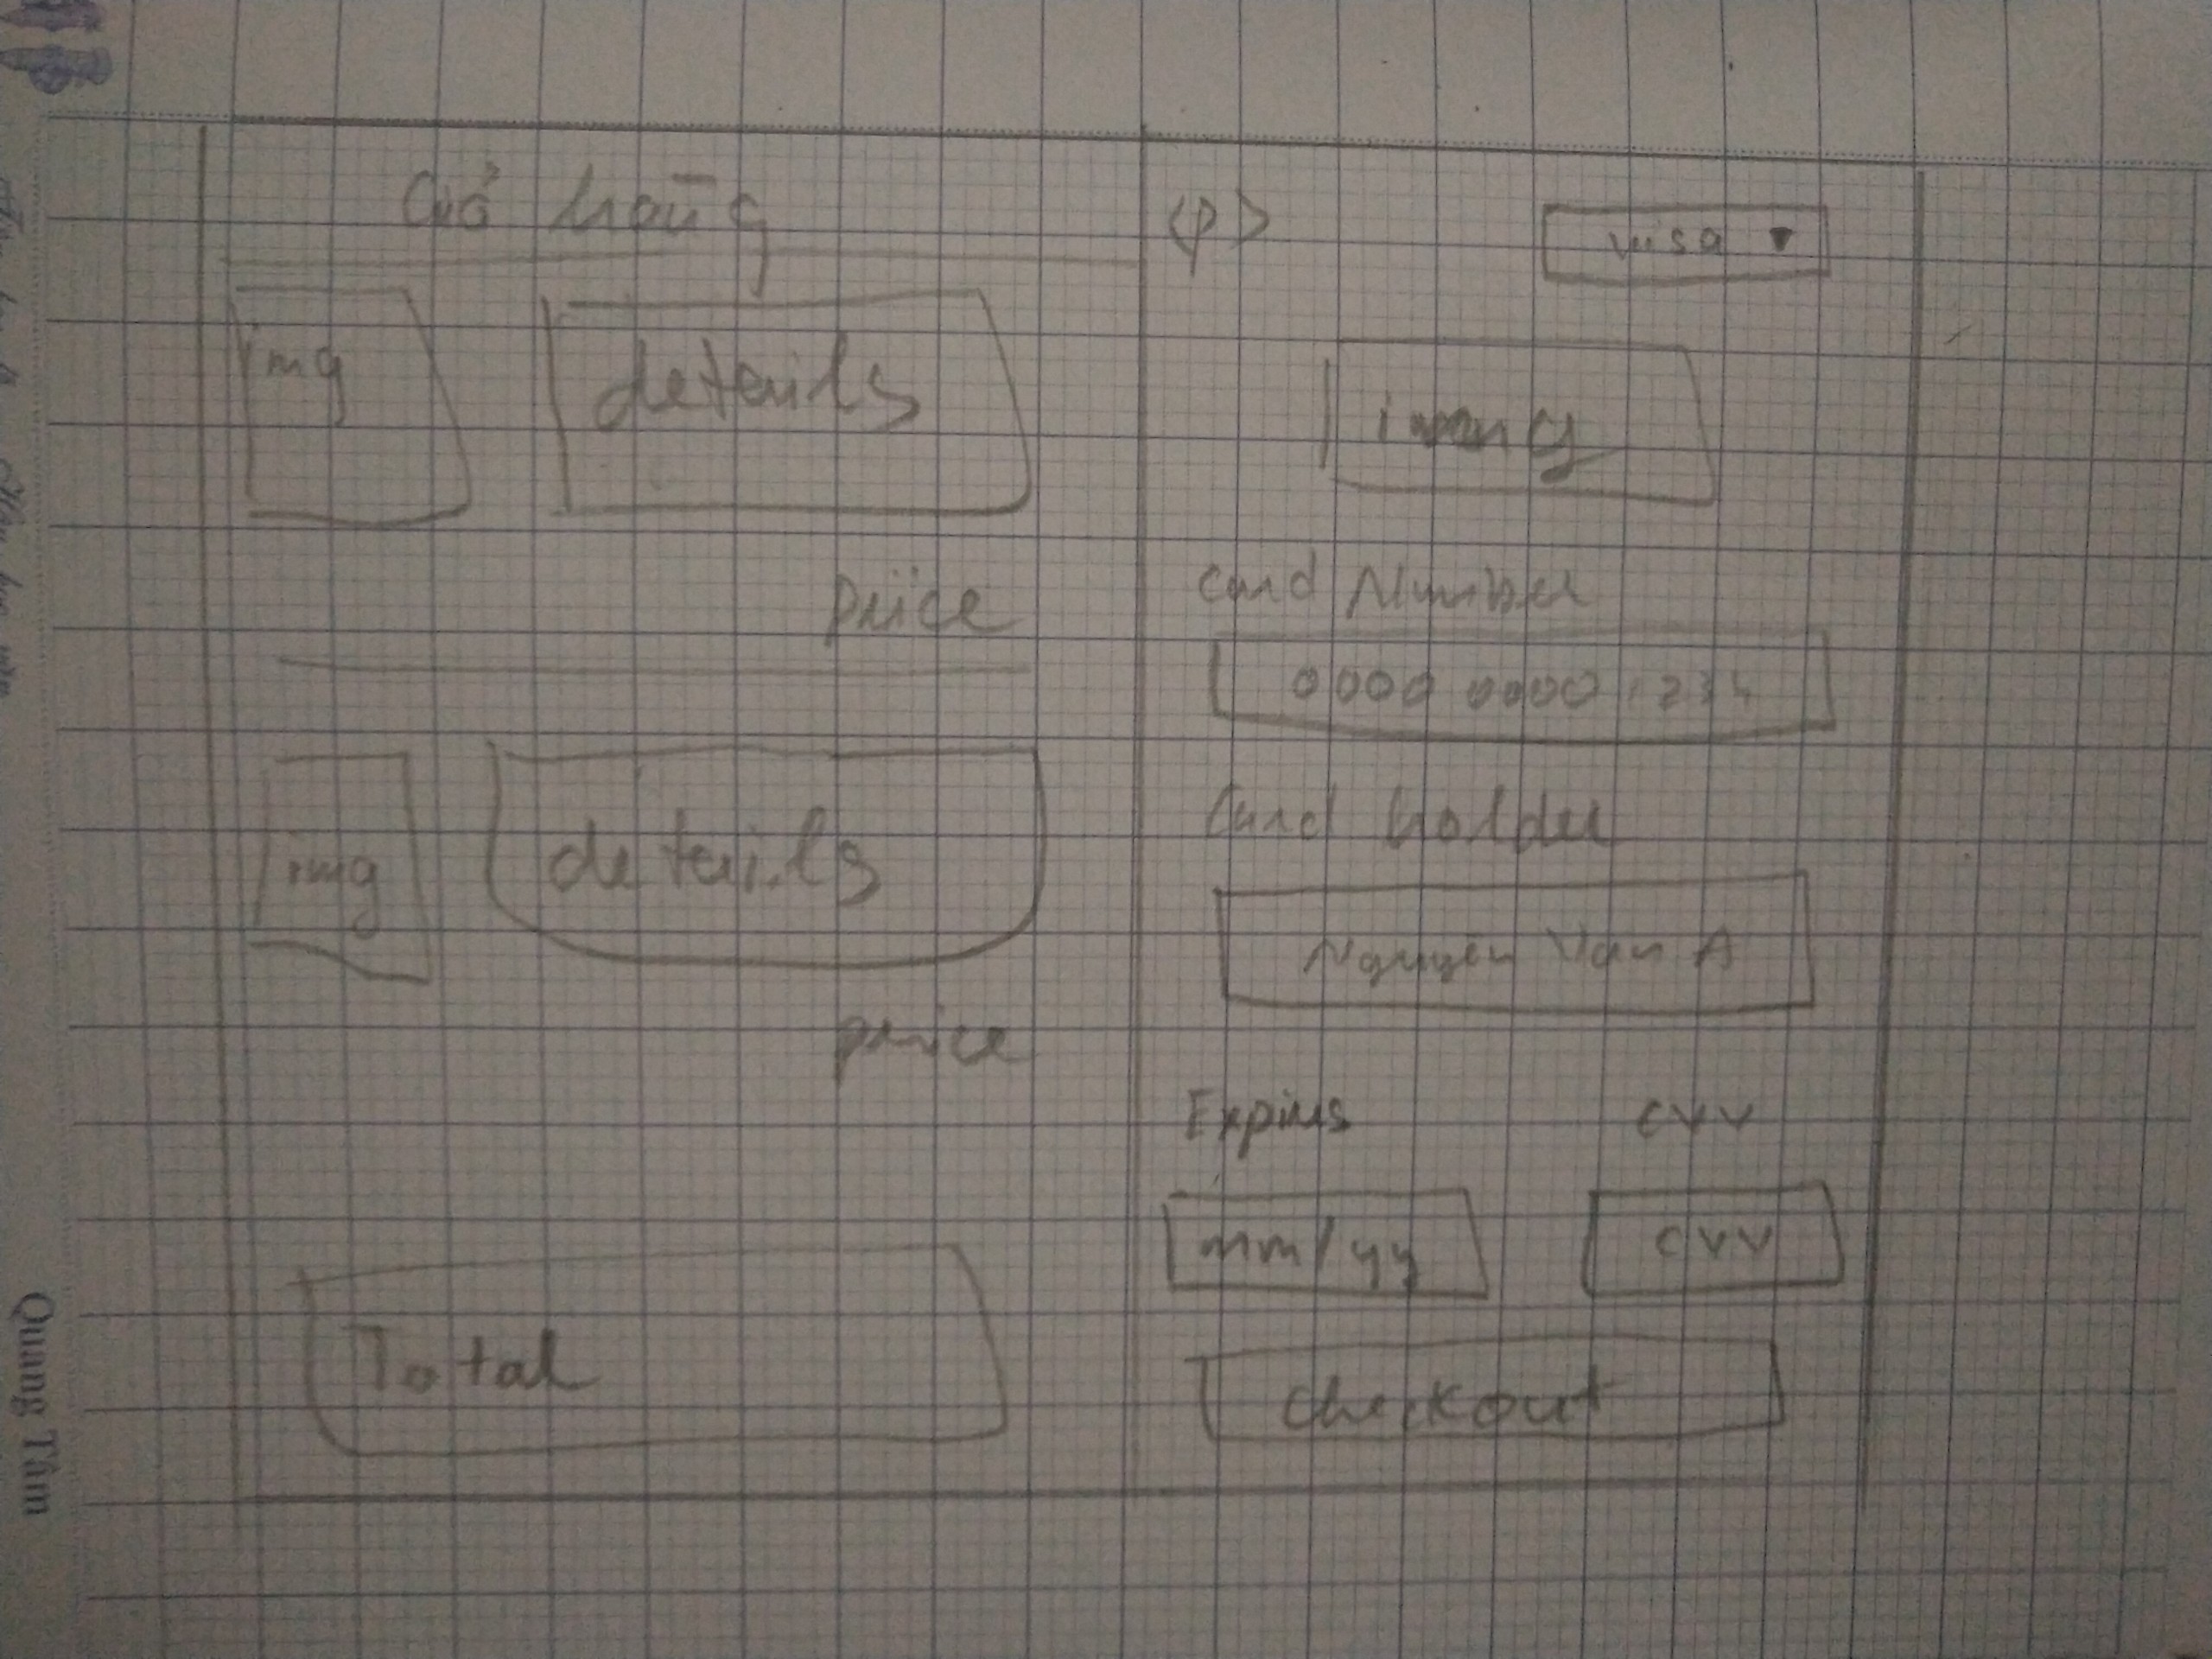 Giỏ hàng
img
details
price
img
details
price
Total
<p>
visa
img
Card Number
0000 0000 1234
Card holder
Nguyen Van A
Expires
CVV
mm/yy
CVV
checkout
Quang Tâm